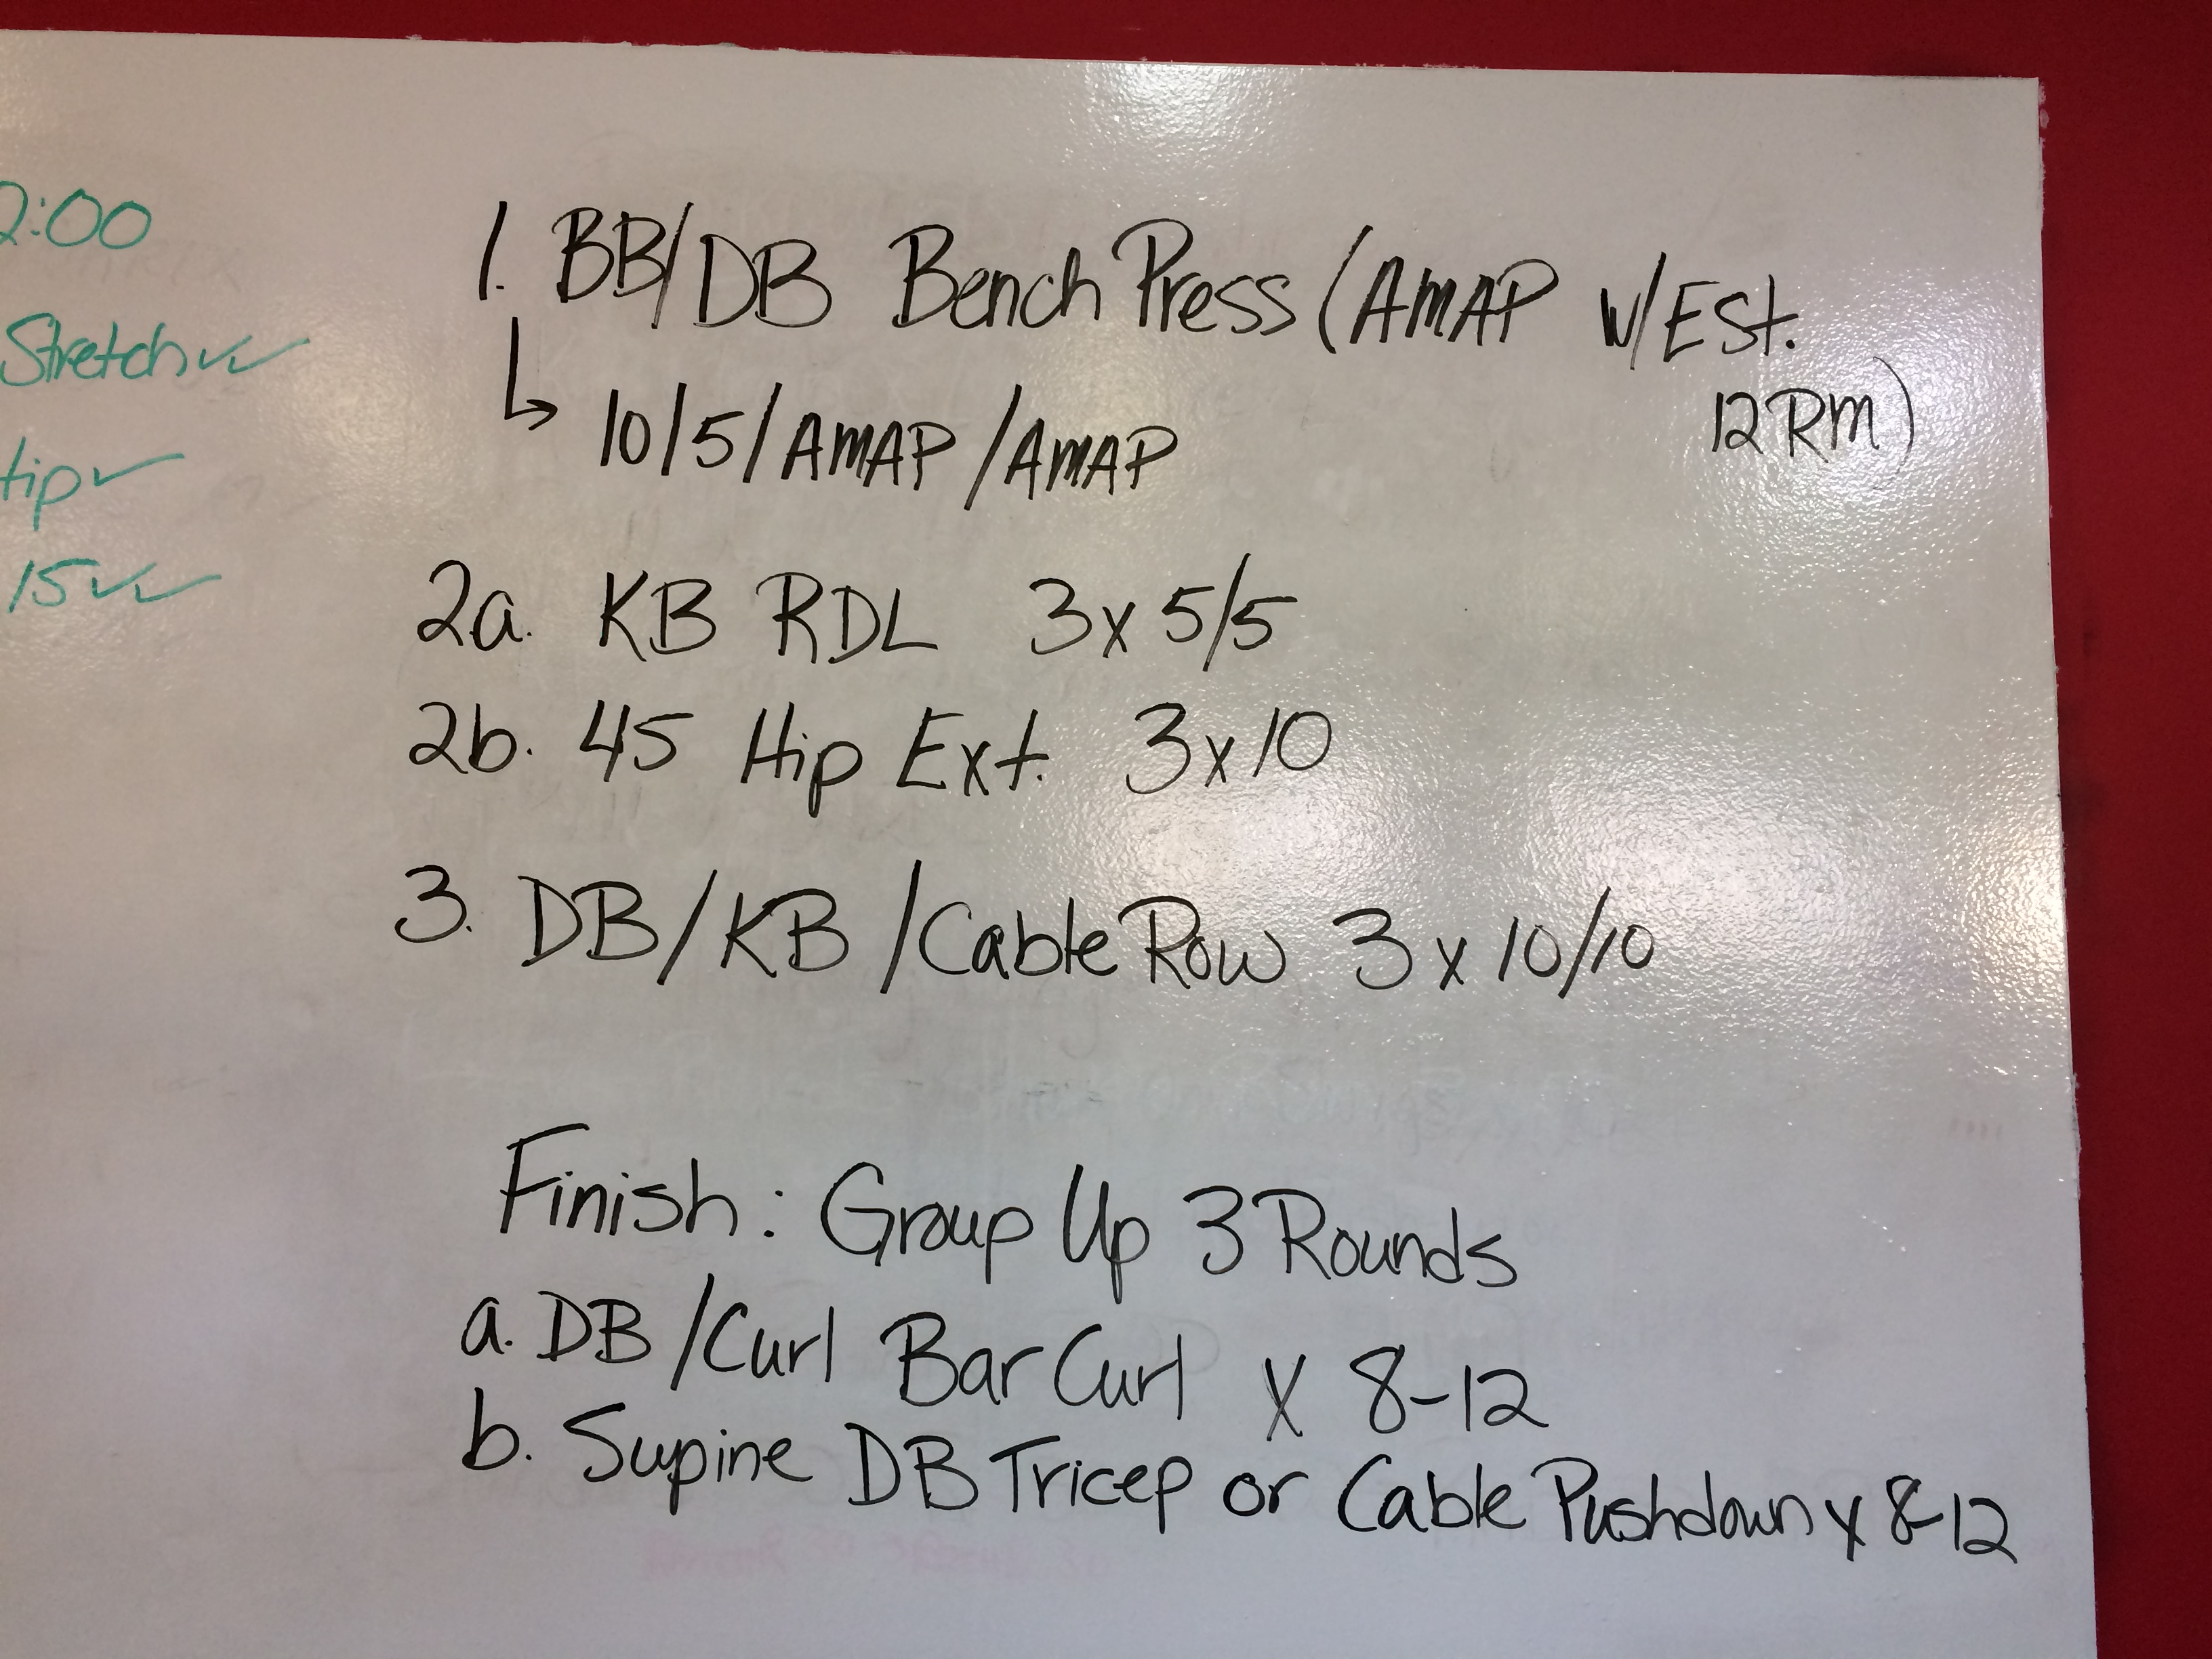 2:00
Stretch ✓✓
15 ✓✓
1. BB/DB Bench Press (AMAP w/Est.
12RM)
↳ 10/5/AMAP/AMAP
2a. KB RDL 3x5/5
2b. 45 Hip Ext. 3x10
3. DB/KB/Cable Row 3x10/10
Finish: Group Up 3 Rounds
a. DB/Curl Bar Curl x 8-12
b. Supine DB Tricep or Cable Pushdown x 8-12